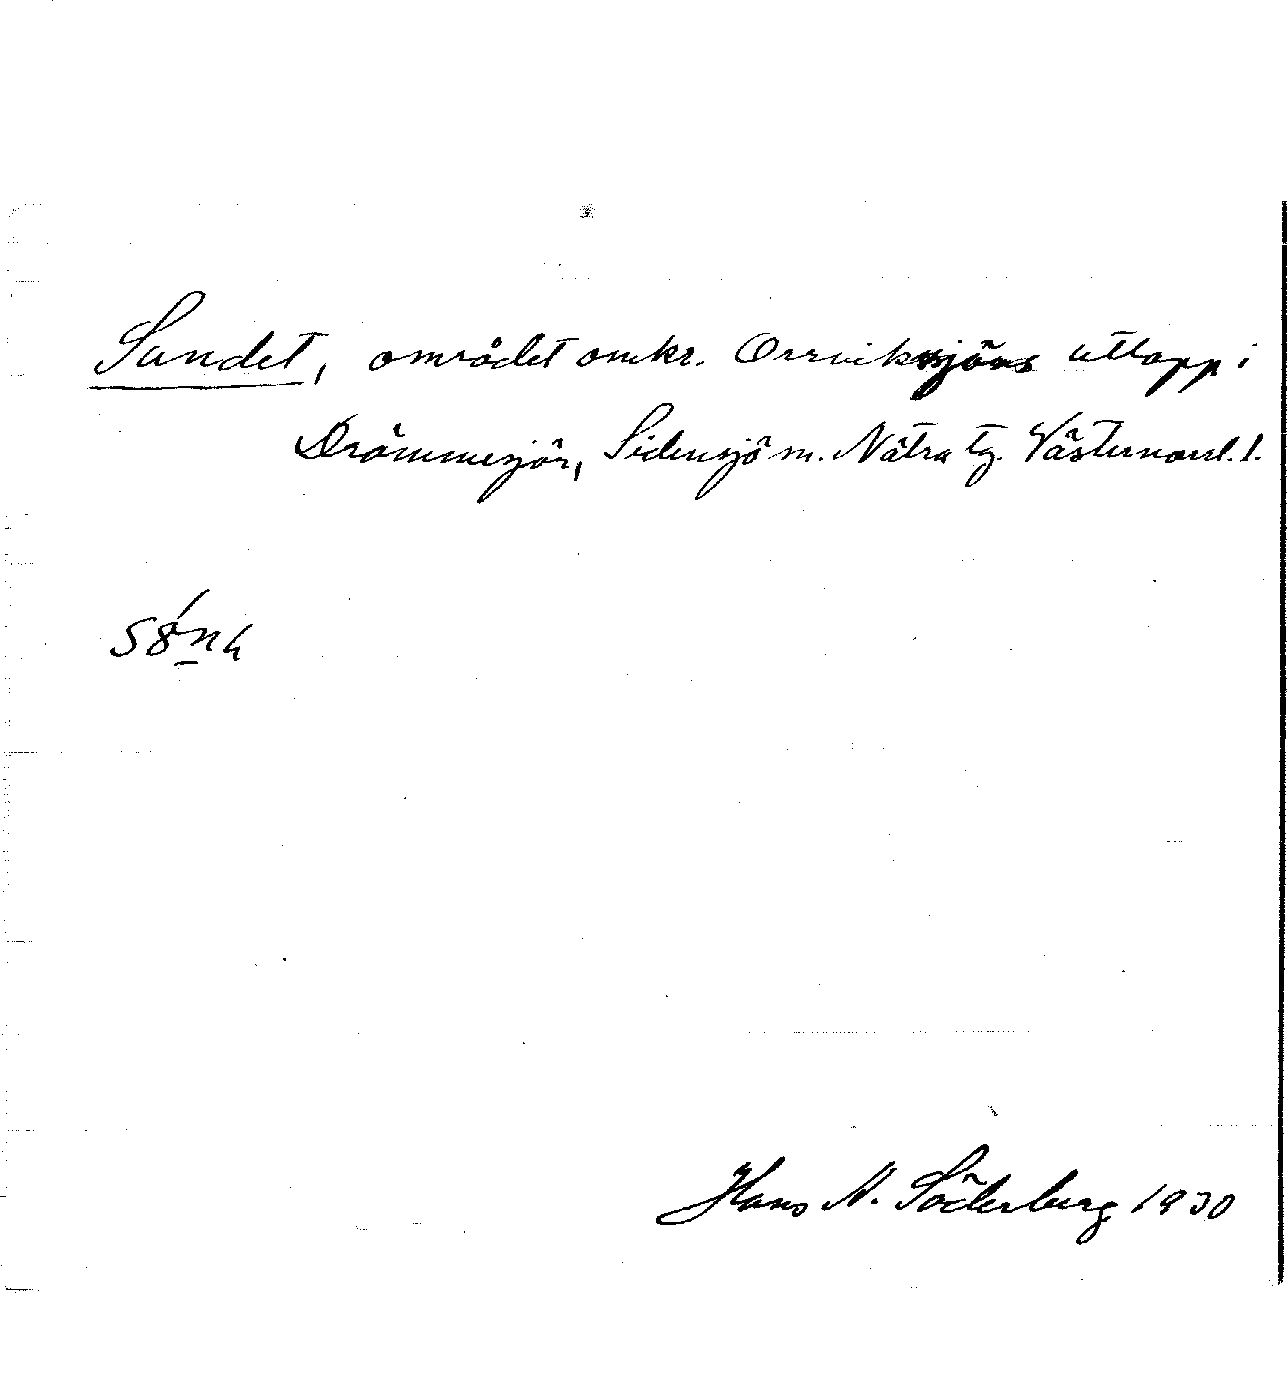 Sundet, området omkr. Orrviksjöns utlopp i
Drömmesjön, Sidensjö sn. Nätra tg. Västernorrl. l.
Hans N. Söderberg 1930